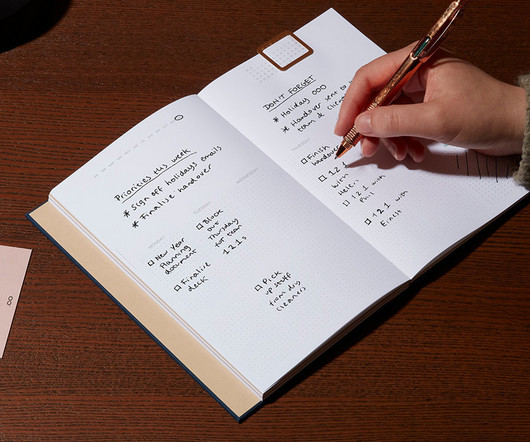 Priorities this week
* Sign off holidays emails
* Finalise handover
□ New Year
Planning
document
□ Finalise
deck
□ Block
out
Thursday
for team
121s
□ Pick
up stuff
from dry
cleaners
DON'T FORGET
* Holiday OOO
* Handover sent to
team & clients
□ Finish
handover
□ 121
with
Helen
□ 121 with
Phil
□ 121 with
Eilish
8